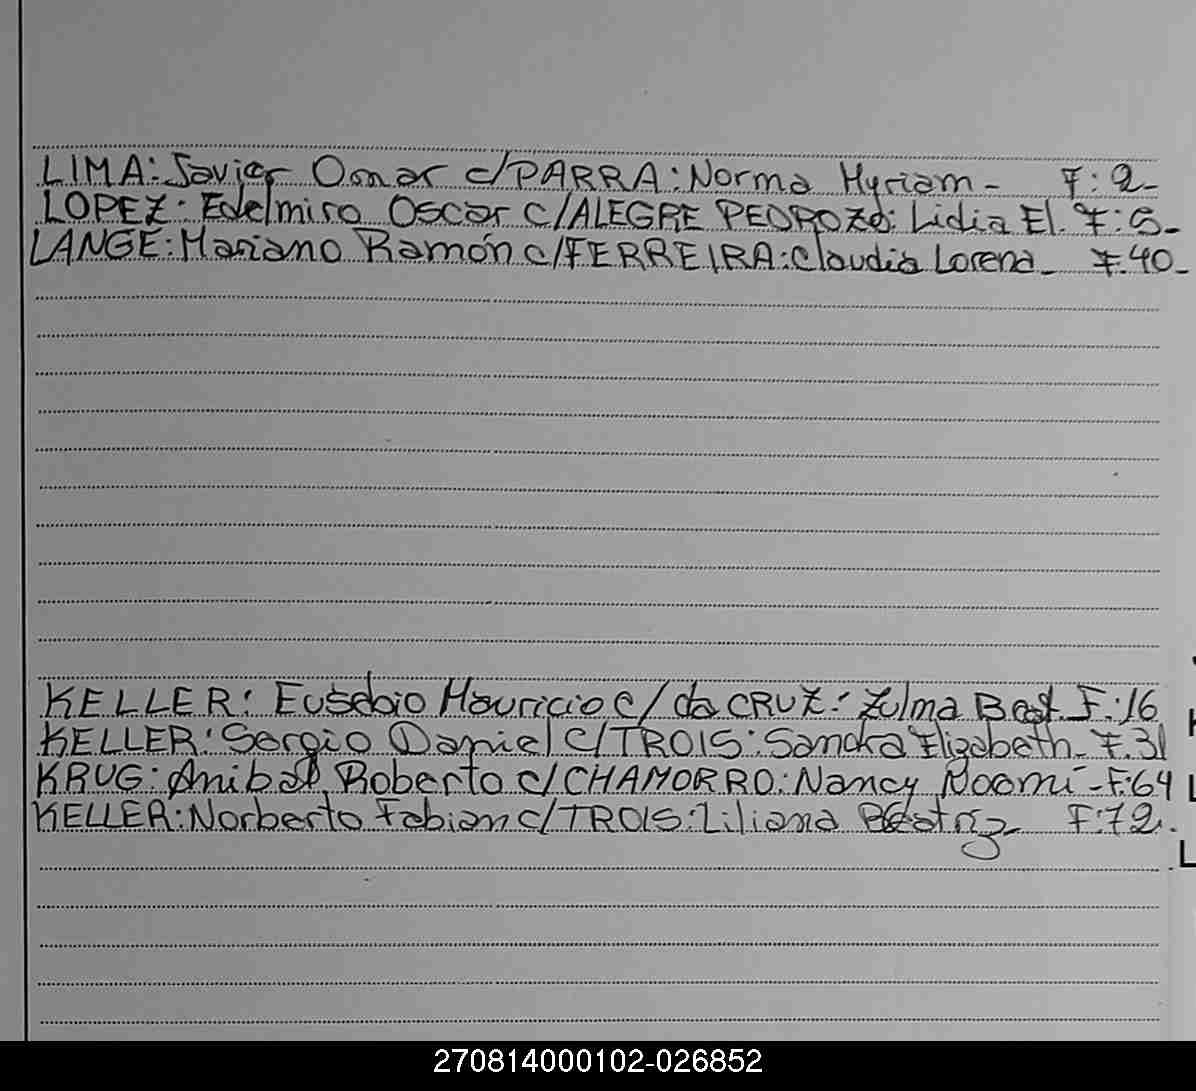 LIMA: Javier Omar c/PARRA: Norma Myriam- F: 2-
LOPEZ: Edelmiro Oscar c/ALEGRE PEDROZO: Lidia El. F: 5-
LANGE: Mariano Ramón c/FERREIRA: Claudia Lorena- F.40-
KELLER: Eusebio Mauricio c/ da CRUZ: Zulma Beat. F.:16
KELLER: Sergio Daniel c/TROIS: Sandra Elizabeth- F.31
KRUG: Anibal Roberto c/CHAMORRO: Nancy Noomí-F:64
KELLER: Norberto Fabian c/TROIS: Liliana Beatriz- F:72.
270814000102-026852